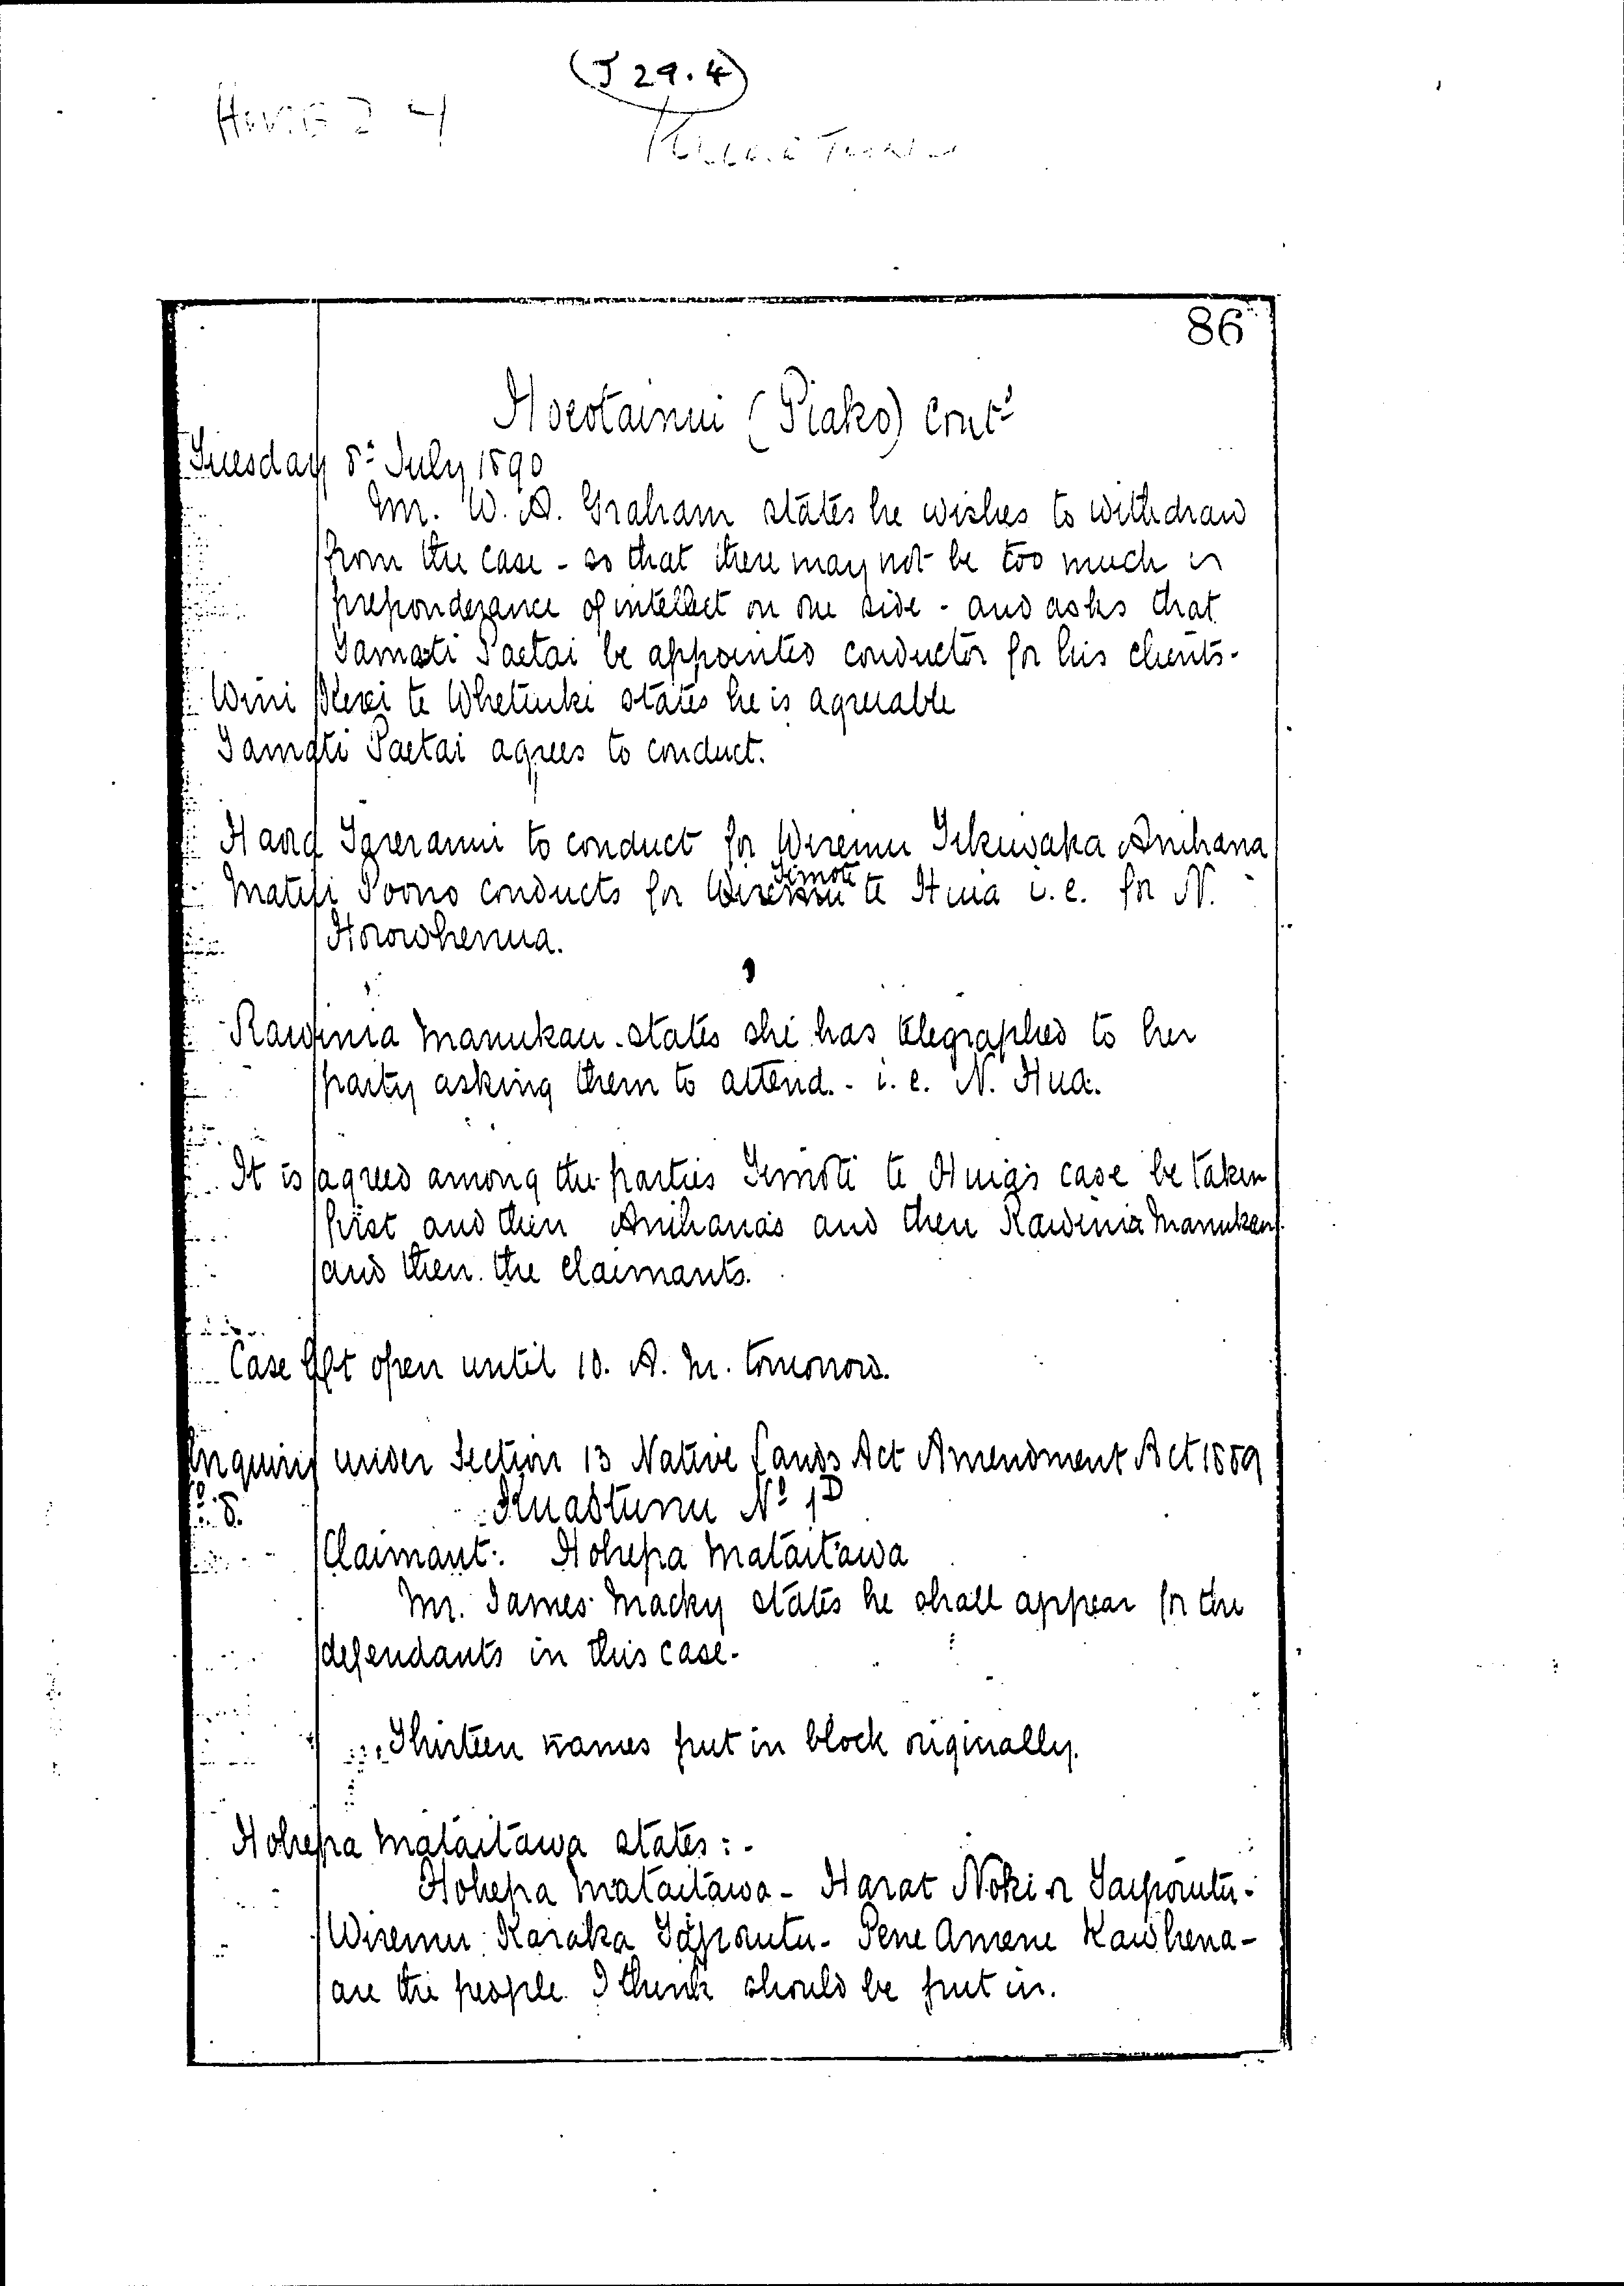 (J 29.4)
86
Hoeotainui (Piako) Contd
Tuesday 8th July 1890
Mr. W. A. Graham states he wishes to withdraw
from the case - so that there may not be too much
preponderance of intellect on one side - and asks that
Tamati Paetai be appointed conductor for his clients -
Wini Kerei te Whetuiki states he is agreeable
Tamati Paetai agrees to conduct.
Haora Tareranui to conduct for Wiremu Anihana
Matiu Poono conducts for Wiremu Timote te Huia i.e. for N.
Horowhenua.
Rawinia Manukau states she has telegraphed to her
party asking them to attend - i.e. N. Hua.
It is agreed among the parties Timoti te Huia's case be taken
first and then Anihana's and then Rawinia Manukau
and then the claimants.
Case left open until 10. A. M. tomorrow.
Inquiry under Section 13 Native Lands Act Amendment Act 1889
No. 8.
Kuaotunu No 1D
Claimant: Hohepa Mataitawa
Mr. James Macky states he shall appear for the
defendants in this case -
Thirteen names put in block originally.
Hohepa Mataitawa states :-
Hohepa Mataitawa - Harat Noki or Taiporutu -
Wiremu Karaka Taiporutu - Pene Amene Kawhena -
are the people I think should be put in.